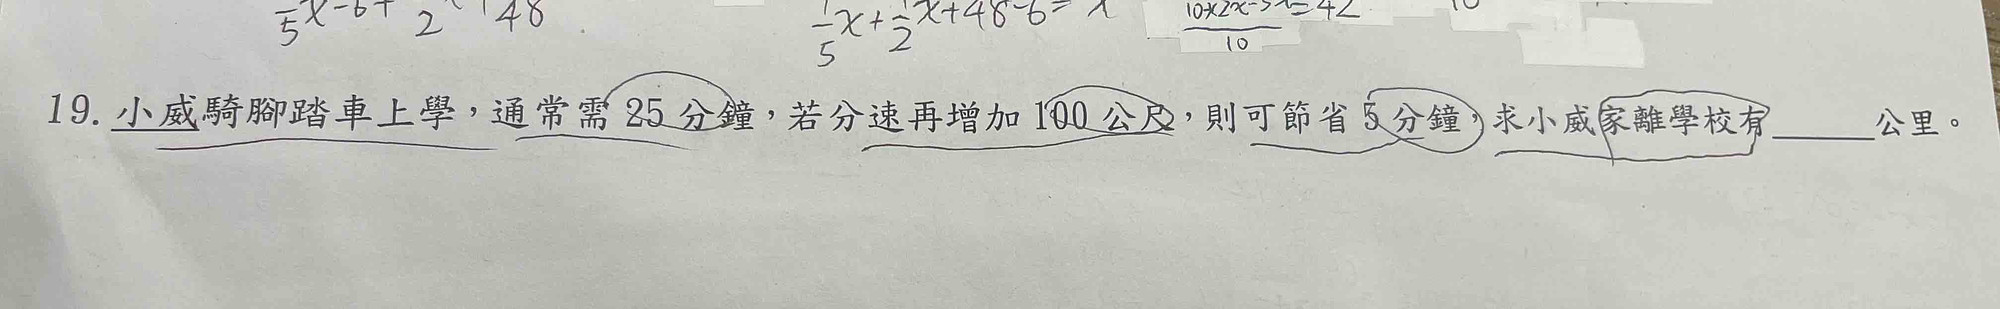 1/5 x-6+ 1/2 x+48 1/5 x+1/2 x+48-6= x 10x2x-5x=42
10
19. 小威騎腳踏車上學，通常需 25 分鐘，若分速再增加 100 公尺，則可節省 5 分鐘，求小威家離學校有______公里。